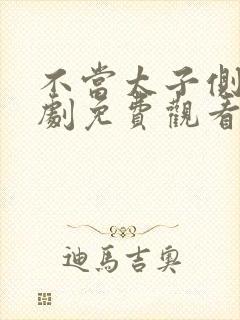 不當太子側
劇免費觀看
迪馬吉奧